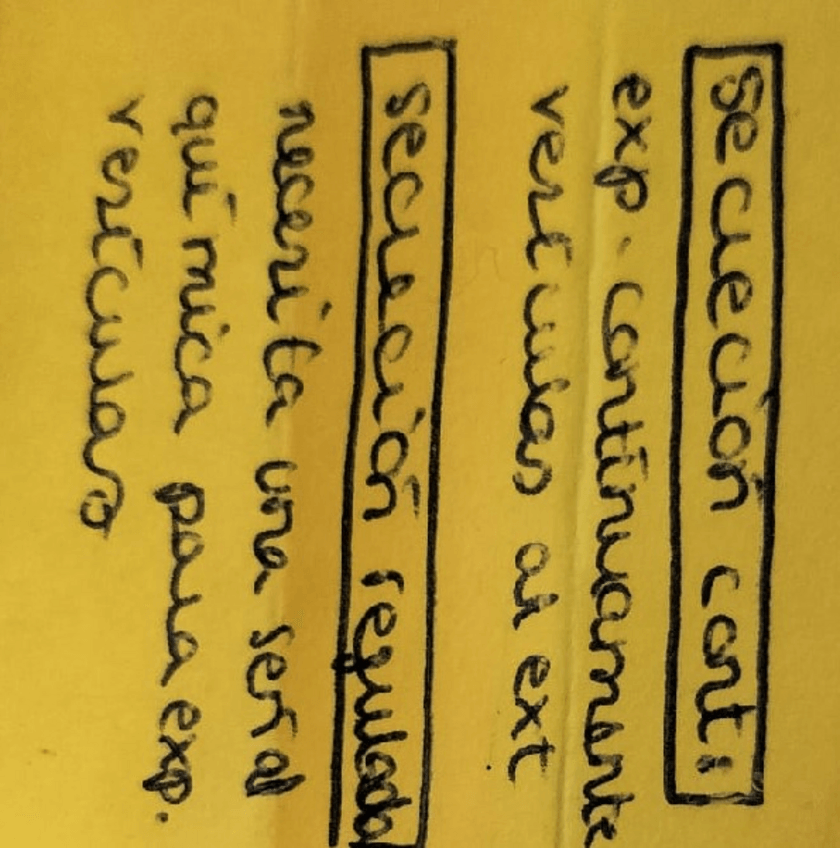 secreción cont:
exp. continuamente
vesículas al ext
secreción regulada
necesita una señal
química para exp.
vesículas